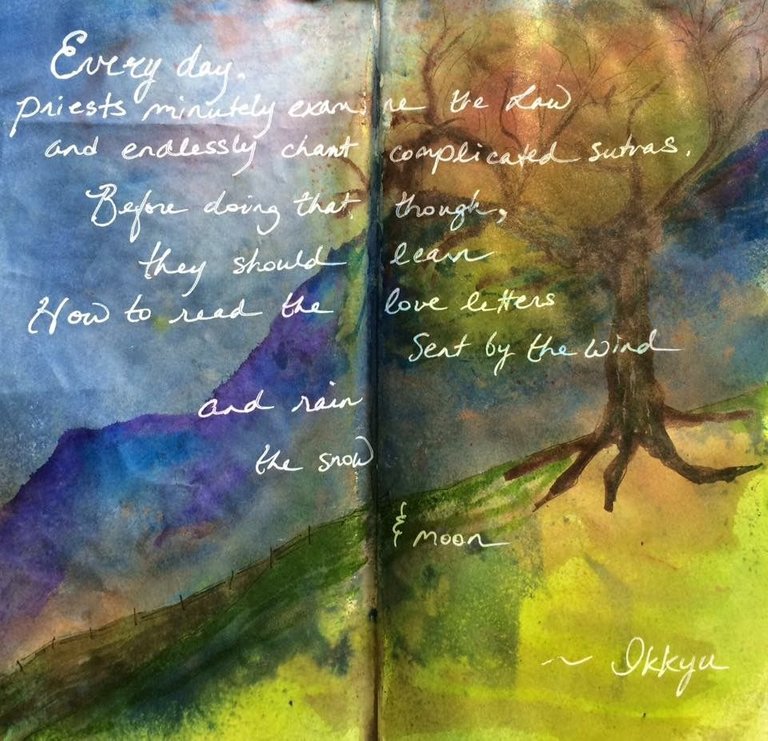 Every day,
priests minutely examine the Law
and endlessly chant complicated sutras.
Before doing that though,
they should learn
How to read the love letters
Sent by the wind
and rain
the snow
& moon
~ Ikkyu